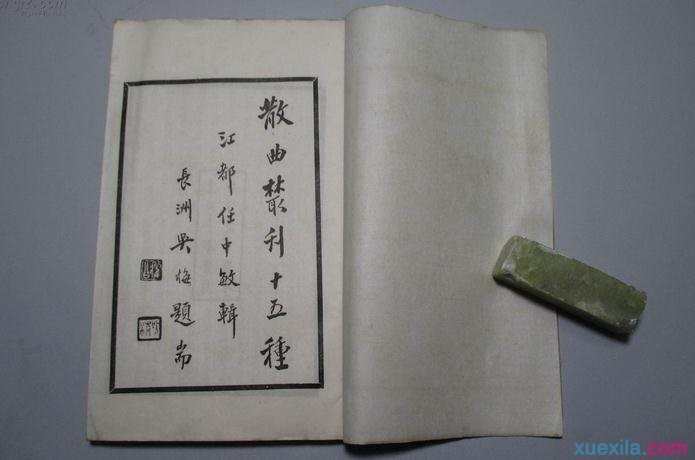 散曲叢刊十五種
江都任中敏輯
長洲吳梅題耑
xuexila.com